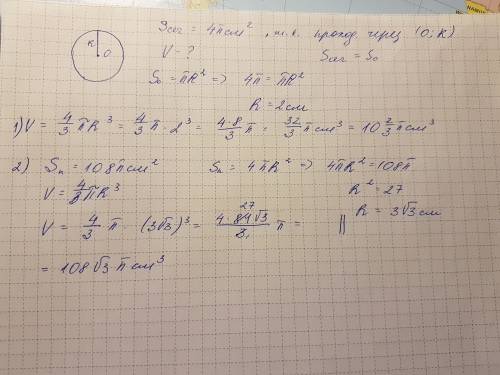 R
O
Sсег = 4π см², т.к. проход. через (O; R)
V = ?
Sсег = S₀
S₀ = πR² => 4π = πR²
R = 2 см
1) V = 4/3 πR³ = 4/3 π · 2³ = 4·8/3 π = 32/3 π см³ = 10 2/3 π см³
2) Sп = 108π см²
Sп = 4πR² => 4πR² = 108π
V = 4/3 πR³
R² = 27
R = 3√3 см
V = 4/3 π · (3√3)³ = 4·81√3/3 π =
27
1
= 108√3 π см³